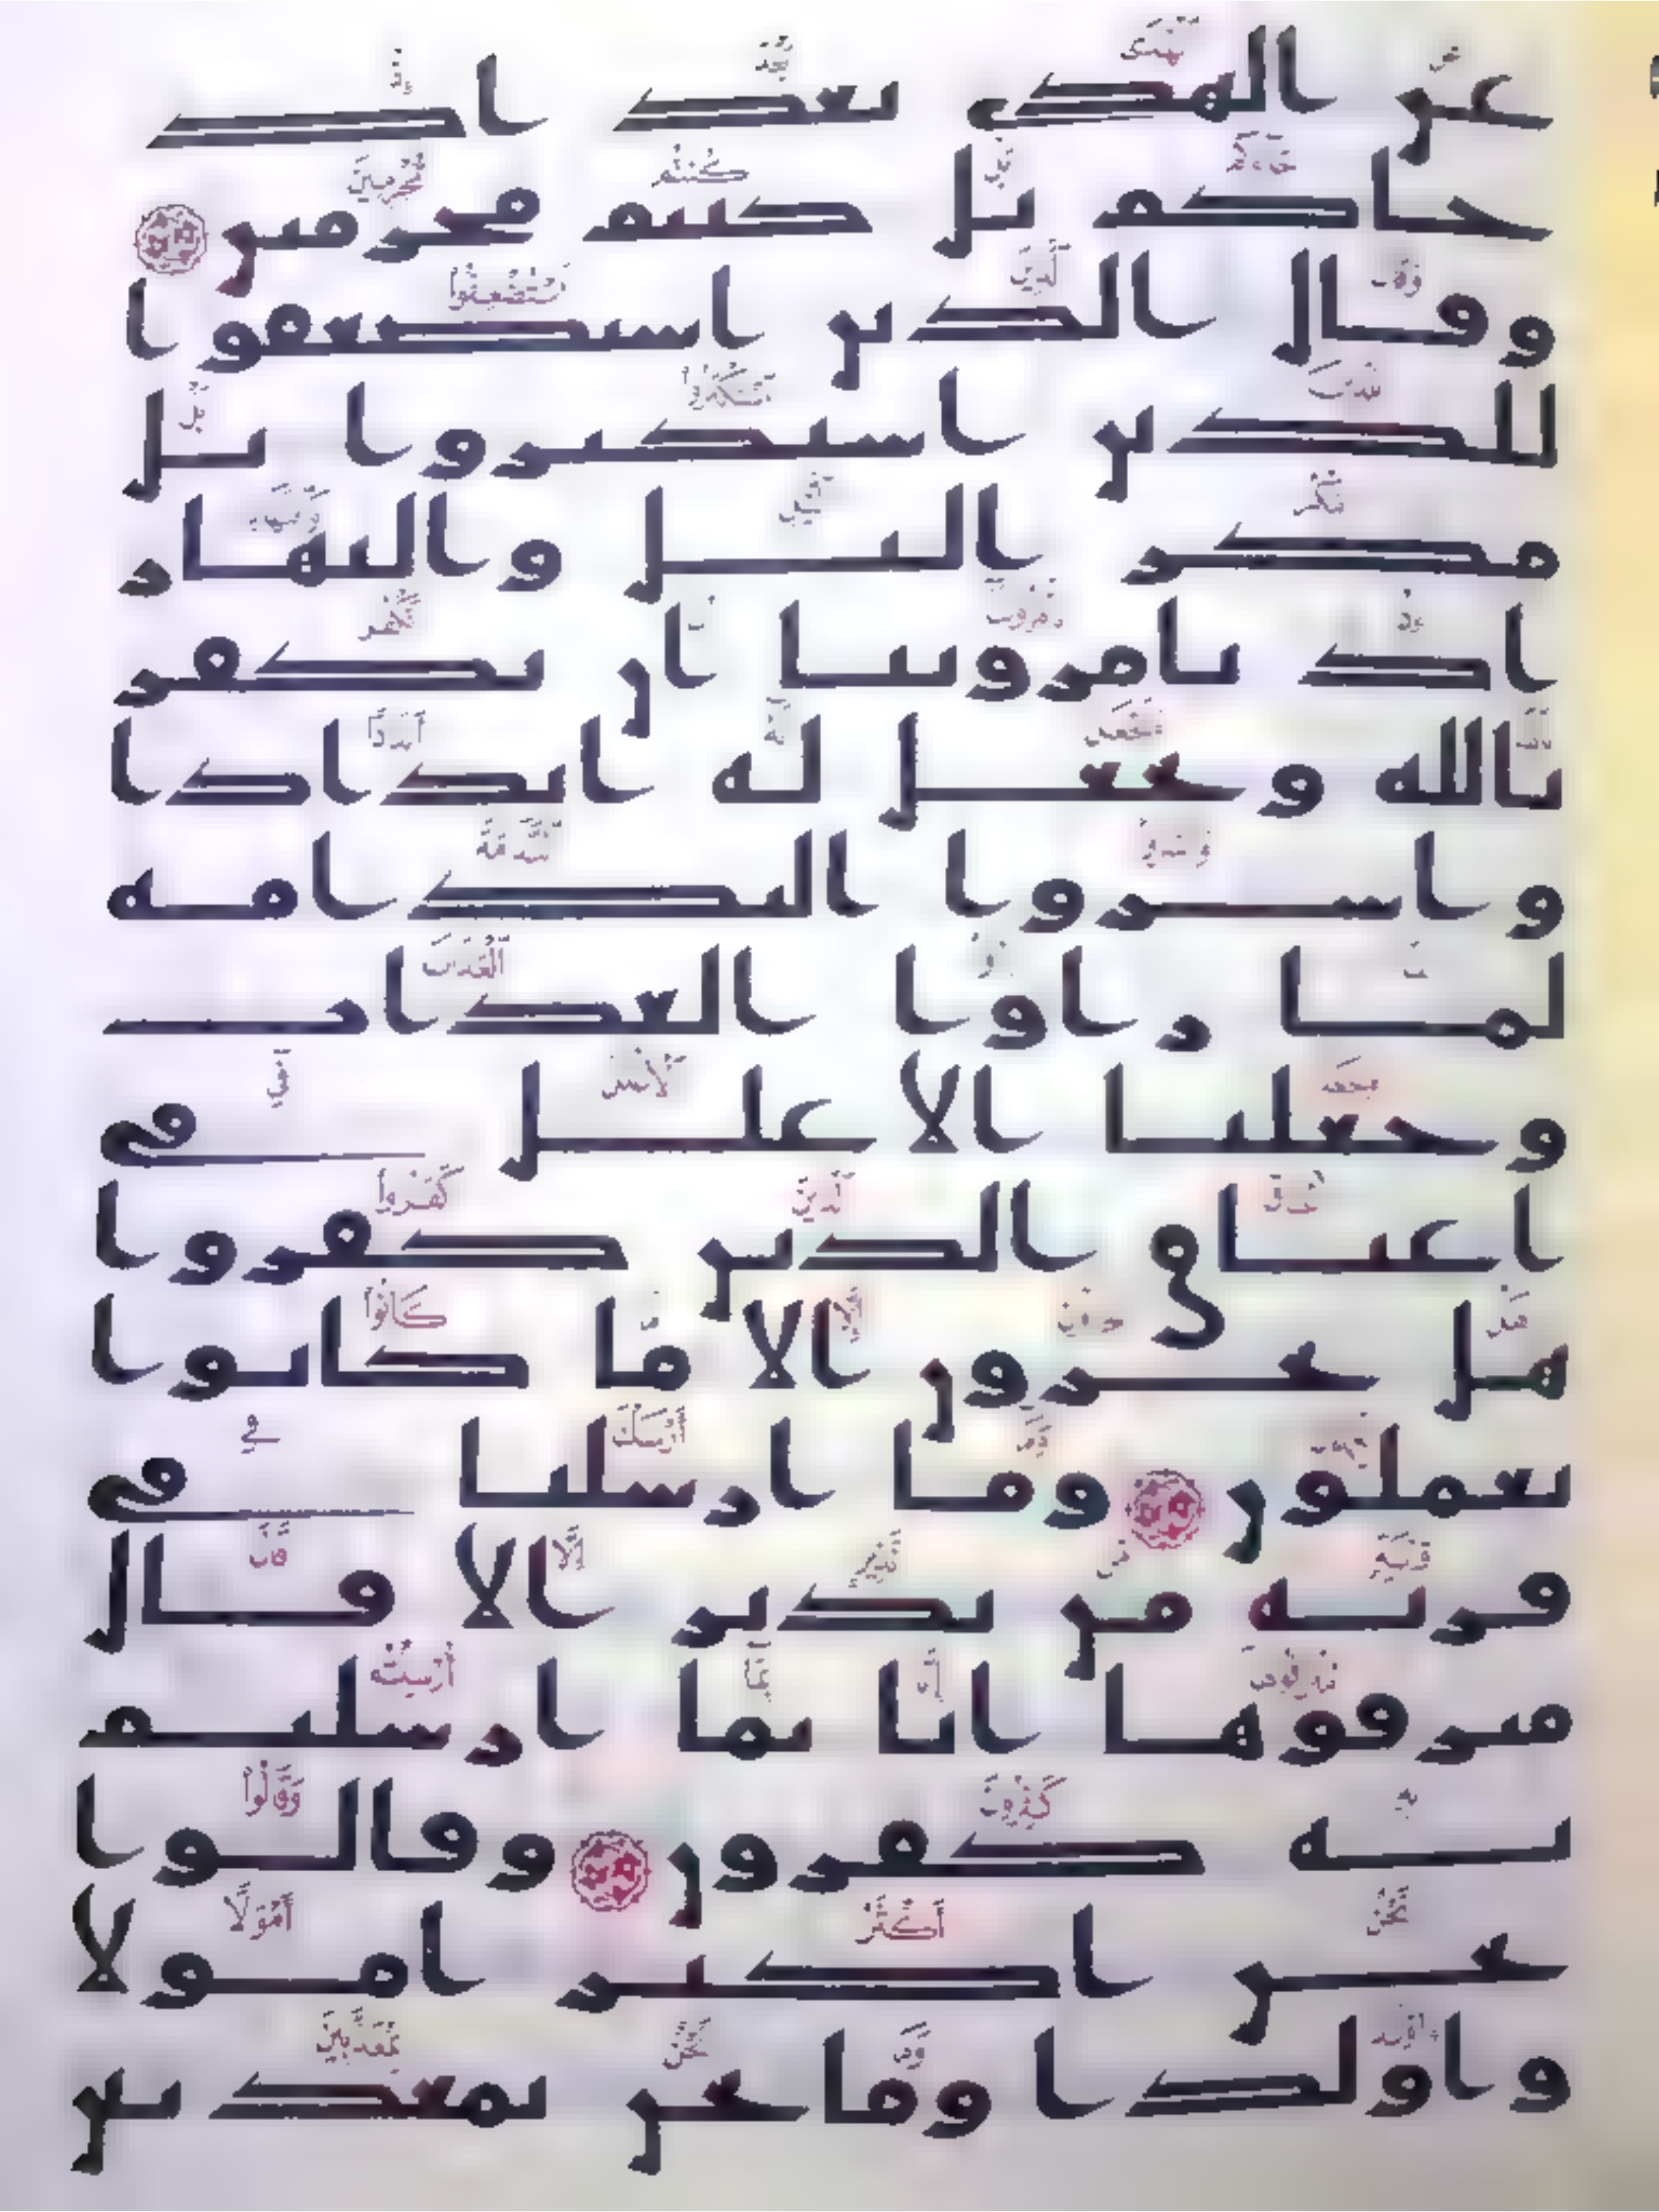 عن الهدى بعد اذ
جاكم بل كنتم مجرمين
وقال الذين استضعفوا
للذين استكبروا بل
مكر اليل والنهار
اذ تامروننا ان نكفر
بالله ونجعل له اندادا
واسروا الندامه
لما راوا العذاب
وجعلنا الاغلل في
اعناق الذين كفروا
هل يجزون الا ما كانوا
يعملون وما ارسلنا في
قريه من نذير الا قال
مترفوها انا بما ارسلتم
به كفرون وقالوا
نحن اكثر امولا
واولدا وما نحن بمعذبين